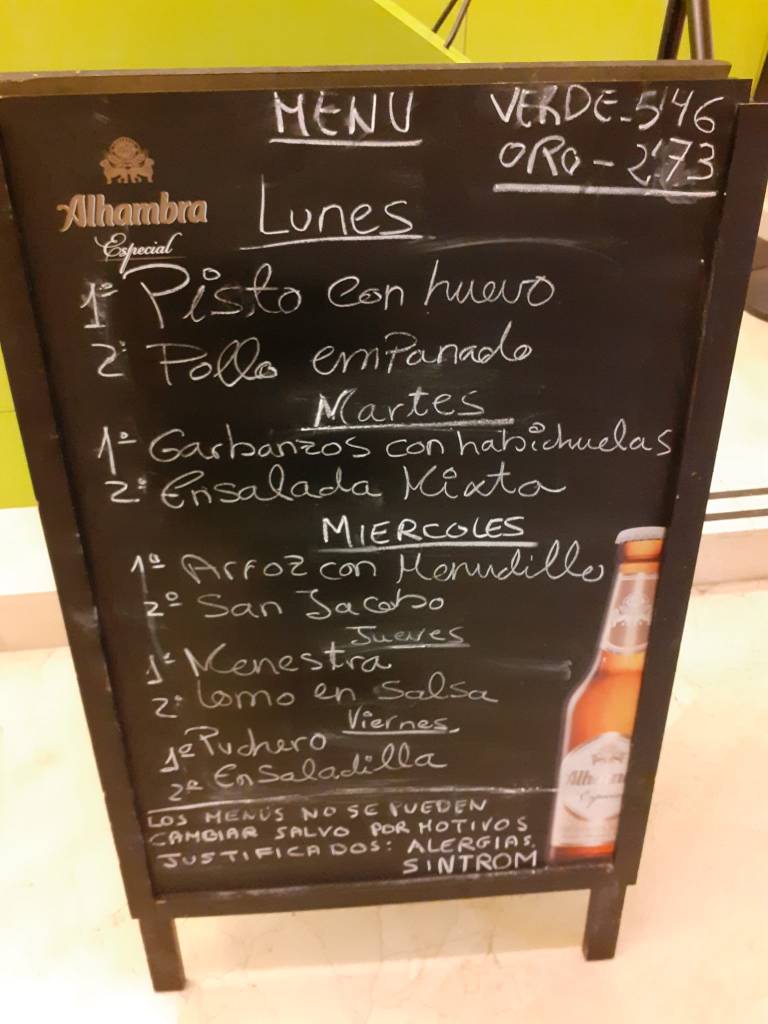 MENU
VERDE-5'46
ORO-2'73
Alhambra
Especial
Lunes
1º Pisto con huevo
2º Pollo empanado
Martes
1º Garbanzos con habichuelas
2º Ensalada Mixta
MIERCOLES
1º Arroz con Menudillo
2º San Jacobo
Jueves
1º Menestra
2º Lomo en salsa
Viernes
1º Puchero
2º Ensaladilla
LOS MENÚS NO SE PUEDEN
CAMBIAR SALVO POR MOTIVOS
JUSTIFICADOS: ALERGIAS,
SINTROM